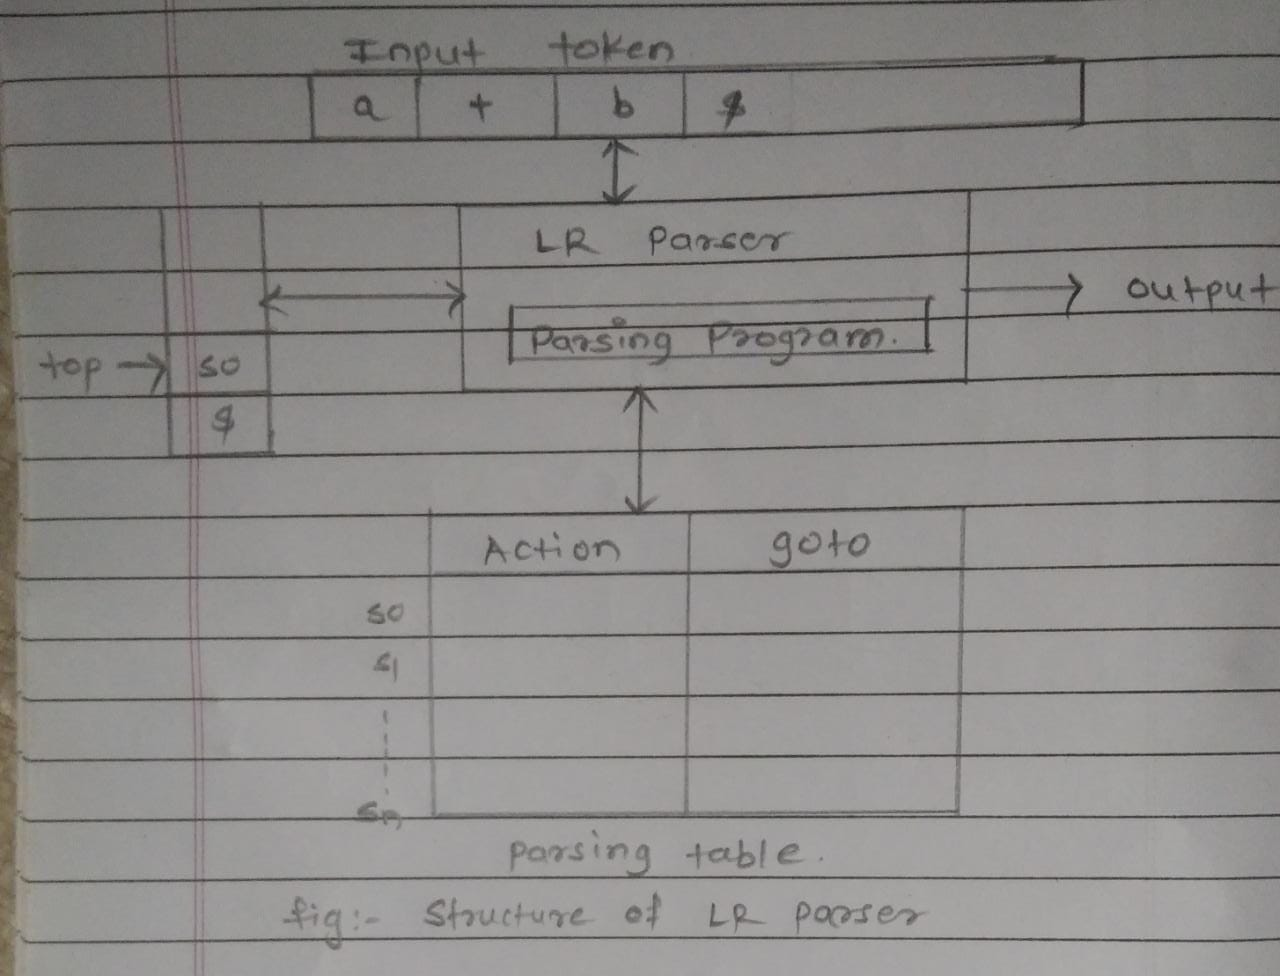 Input token
a + b $
LR Parser
Parsing Program.
output
top → so
$
Action goto
so
s1
sn
parsing table.
fig:- Structure of LR parser